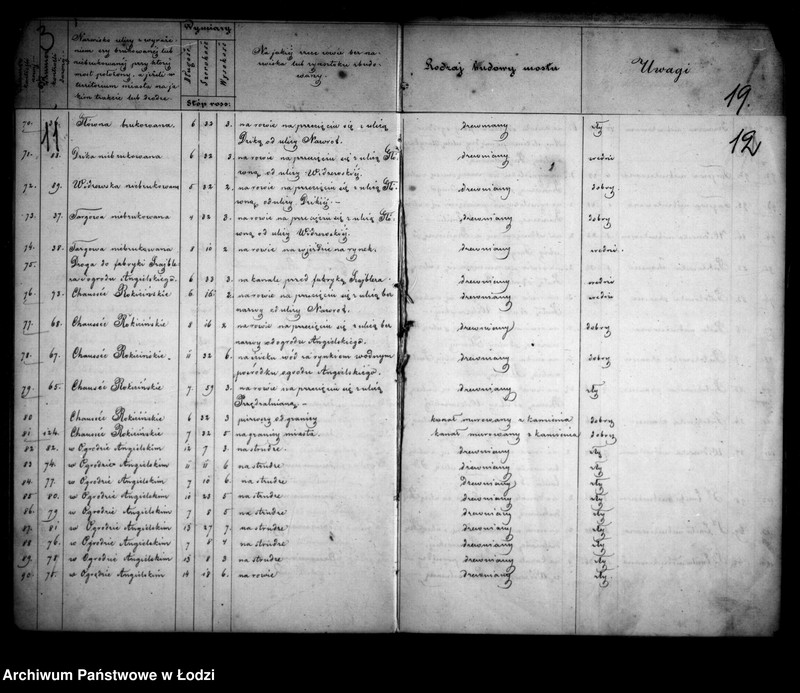 Wymiary
Nazwisko ulicy z wyraże-
niem czy brukowanej lub
niebrukowanej przy której
most położony, a jeśli w
territorium miasta na ja-
kim trakcie lub drodze.
Długość
Szerokość
Wysokość
Stóp ross.
Na jakiej rzece rowie bez na-
zwiska lub rynsztoku zbudo-
wany.
Rodzaj budowy mostu
Uwagi
19.
12
11
70. Główna brukowana. 6 22 3. na rowie na przecięciu się z ulicą drewniany zły
Dziką od ulicy Nawrot.
71. Dzika niebrukowana 6 22 3. na rowie na przecięciu się z ulicą Głó- drewniany średni
wną od ulicy Widzewskiej.
72. 89. Widzewska niebrukowana 5 22 2. na rowie na przecięciu się z ulicą Głó- drewniany dobry
wną, od ulicy Dzikiej.-
73. 37. Targowa niebrukowana 4 22 3. na rowie na przecięciu się z ulicą Głó- drewniany dobry
wną od ulicy Widzewskiej.
74. 38. Targowa niebrukowana 8 10 2 na rowie na wjeździe na rynek. drewniany średni.
75. Droga do fabryki
za ogrodu Angielskiego. 6 3. na kanale przed fabryką drewniany średni
76. 73. Chaussée Rokicińskie 6 16 2. na rowie na przecięciu się z ulicą bez drewniany średni
nazwy od ulicy Nawrot.
77. 68. Chaussée Rokicińskie 8 16 2 na rowie na przecięciu się z ulicą bez drewniany dobry
nazwy od ogrodu Angielskiego.
78. 67. Chaussée Rokicińskie. 11 22 6. na ścieku wód za rynkiem wodnym drewniany dobry
pośrodku ogrodu Angielskiego.
79. 65. Chaussée Rokicińskie 7. 59 3. na rowie na przecięciu się z ulicą drewniany zły
Przędzalnianą.-
80 Chaussée Rokicińskie 6 22 3 pierwszy od granicy kanał murowany z kamienia dobry
81 124. Chaussée Rokicińskie 7 22 5 na granicy miasta. kanał murowany z kamienia dobry
82 82. w Ogrodzie Angielskim 12 7 3. na strudze drewniany zły
83 74. w Ogrodzie Angielskim 11 11 6 na strudze drewniany zły
84. 77. w Ogrodzie Angielskim 7 10 6. na strudze drewniany zły
85 80. w Ogrodzie Angielskim 10 23 5 na strudze drewniany zły
86. 79 w Ogrodzie Angielskim 7 8 5 na strudze drewniany zły
87. 81 w Ogrodzie Angielskim 15 27 7. na strudze drewniany zły
88 76. w Ogrodzie Angielskim 7 8 4 na strudze drewniany zły
89. 78 w Ogrodzie Angielskim 13 8 3 na strudze drewniany zły
90. 75. w Ogrodzie Angielskim 14 18 6. na rowie drewniany zły
Archiwum Państwowe w Łodzi